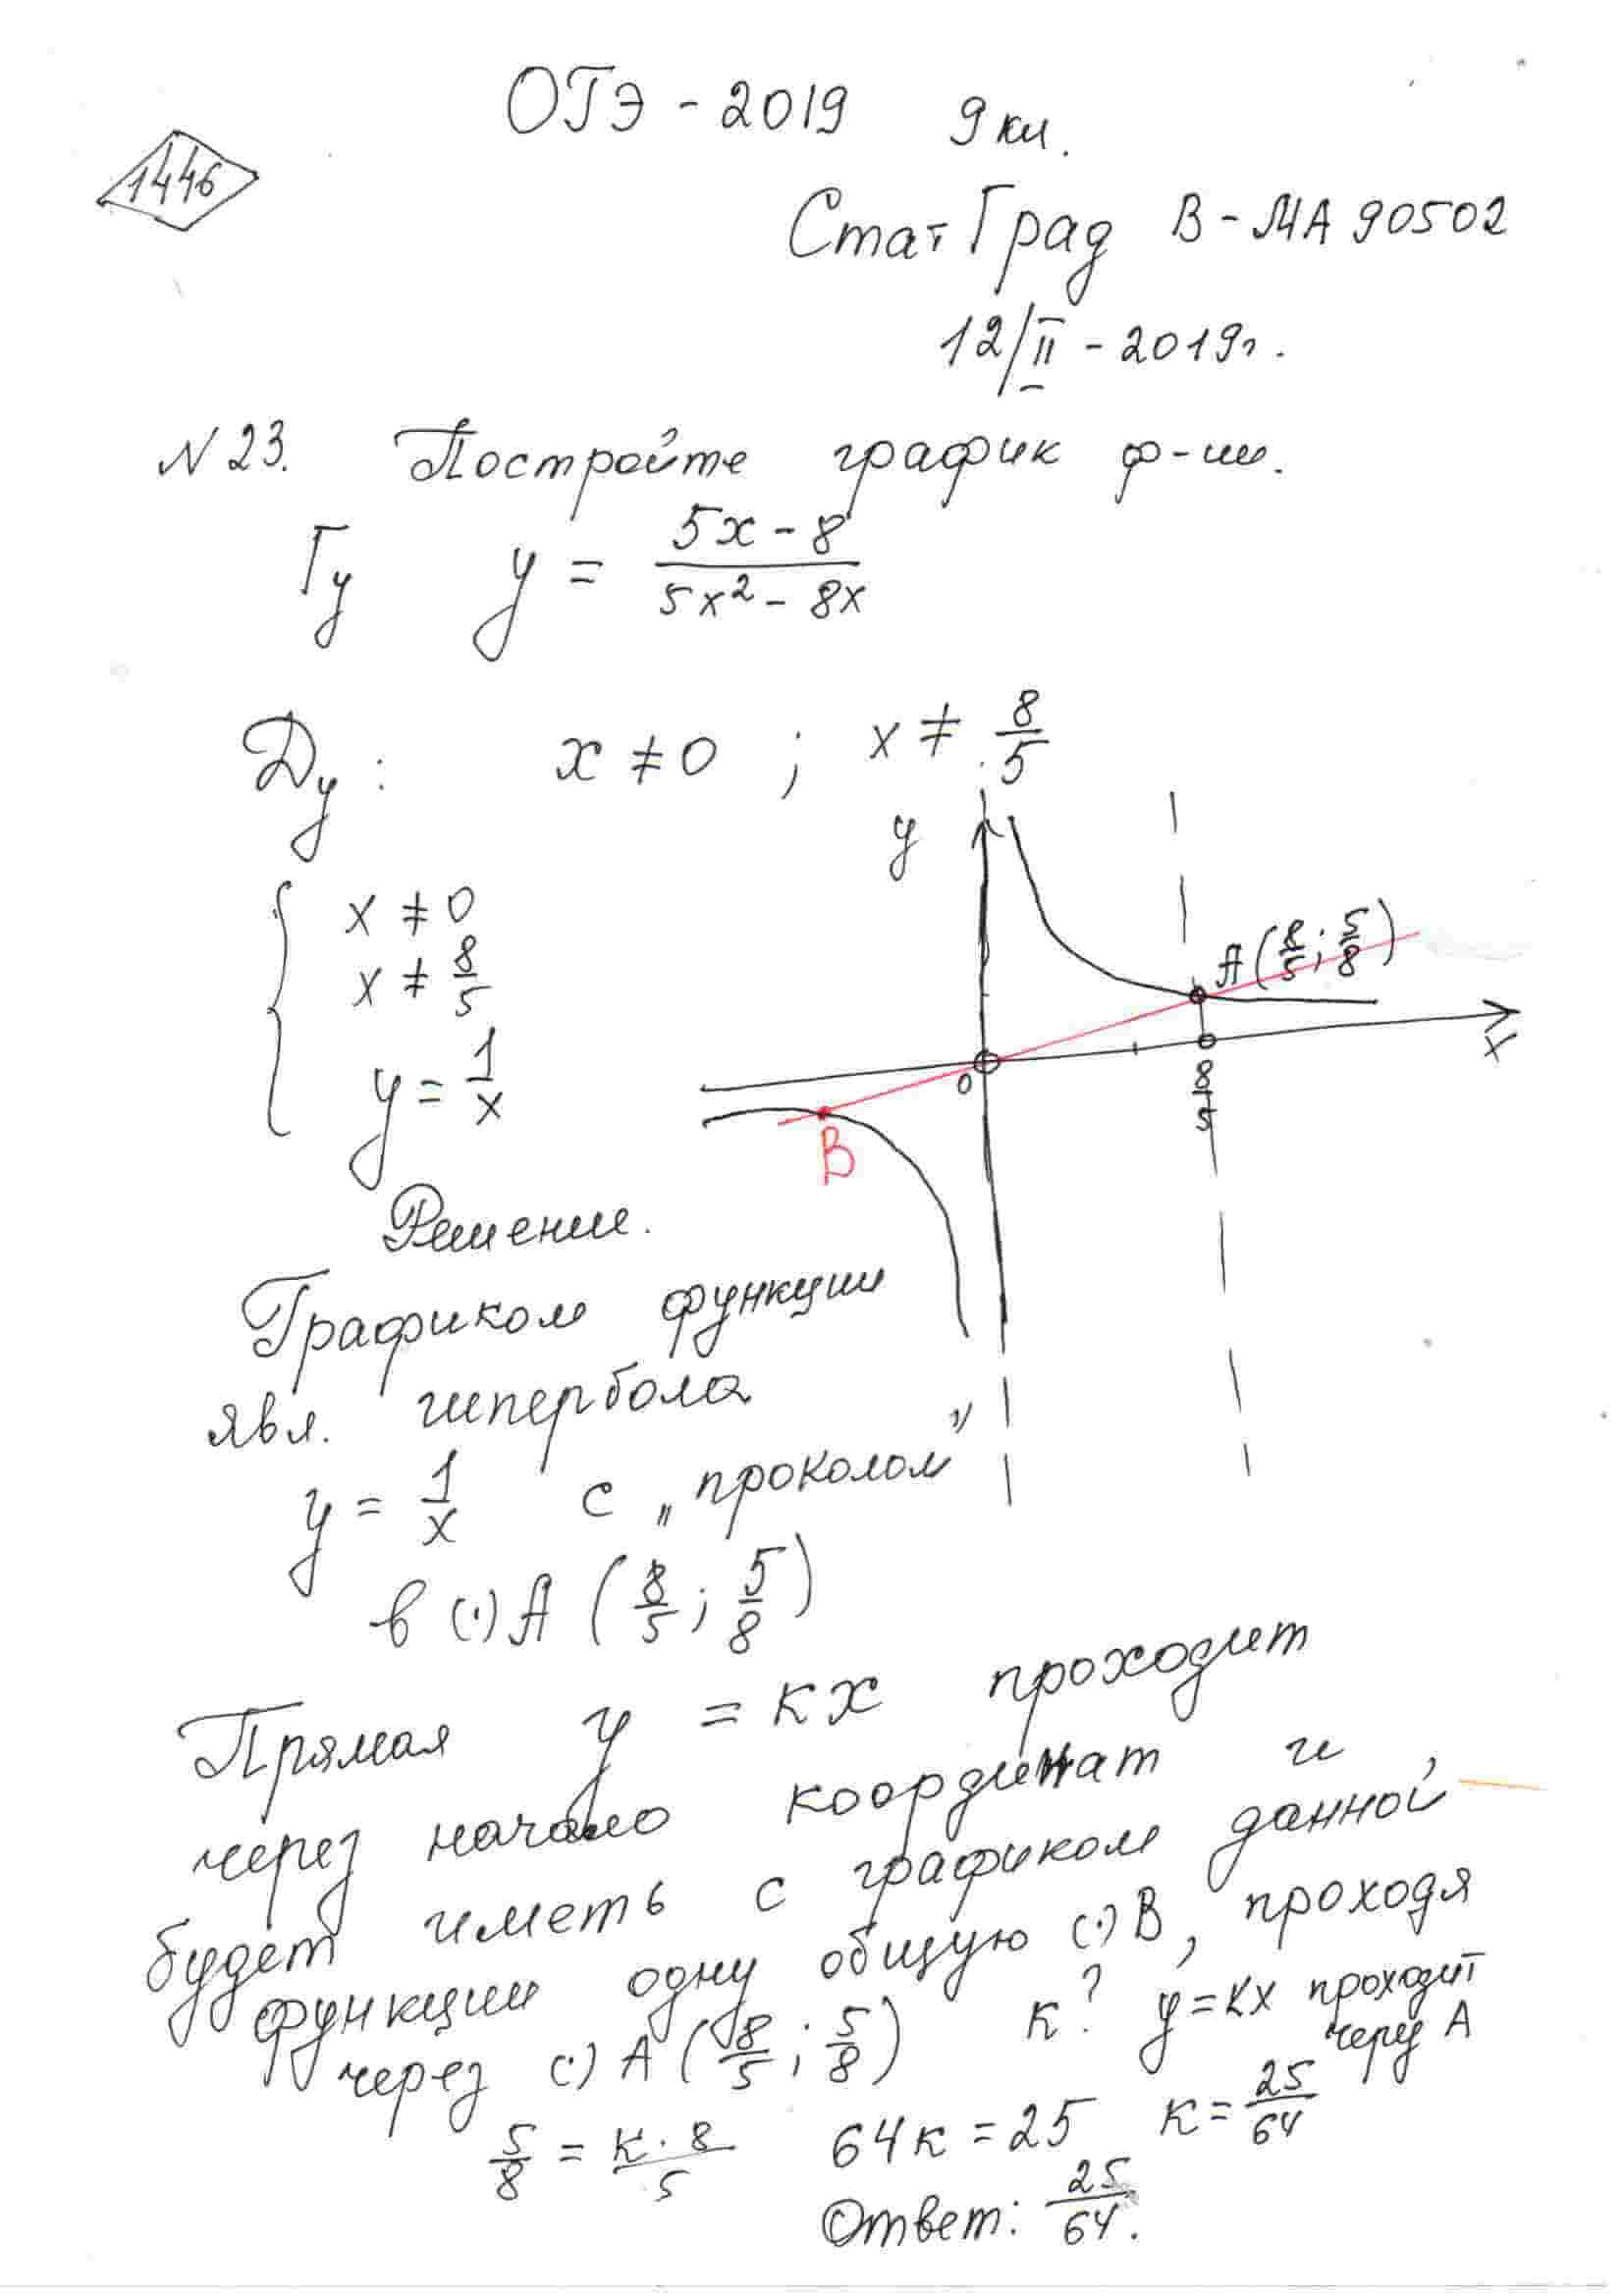 ОГЭ - 2019 9 кл.
1446
СтатГрад В-МА 90502
12/II - 2019г.
N 23. Постройте график ф-ии.
Гу y = (5x - 8)/(5x² - 8x)
Ду: x ≠ 0 ; x ≠ 8/5
y
x ≠ 0
x ≠ 8/5
y = 1/x
A (8/5; 5/8)
x
0
8/5
B
Решение.
Графиком функции
явл. гипербола
y = 1/x с „проколом"
в (·) A (8/5; 5/8)
Прямая y = кx проходит
через начало координат и
будет иметь с графиком данной
функции одну общую (·) B, проходя
через (·) A (8/5; 5/8) к? y = кx проходит
через A
5/8 = к·8/5 64к = 25 к = 25/64
Ответ: 25/64.